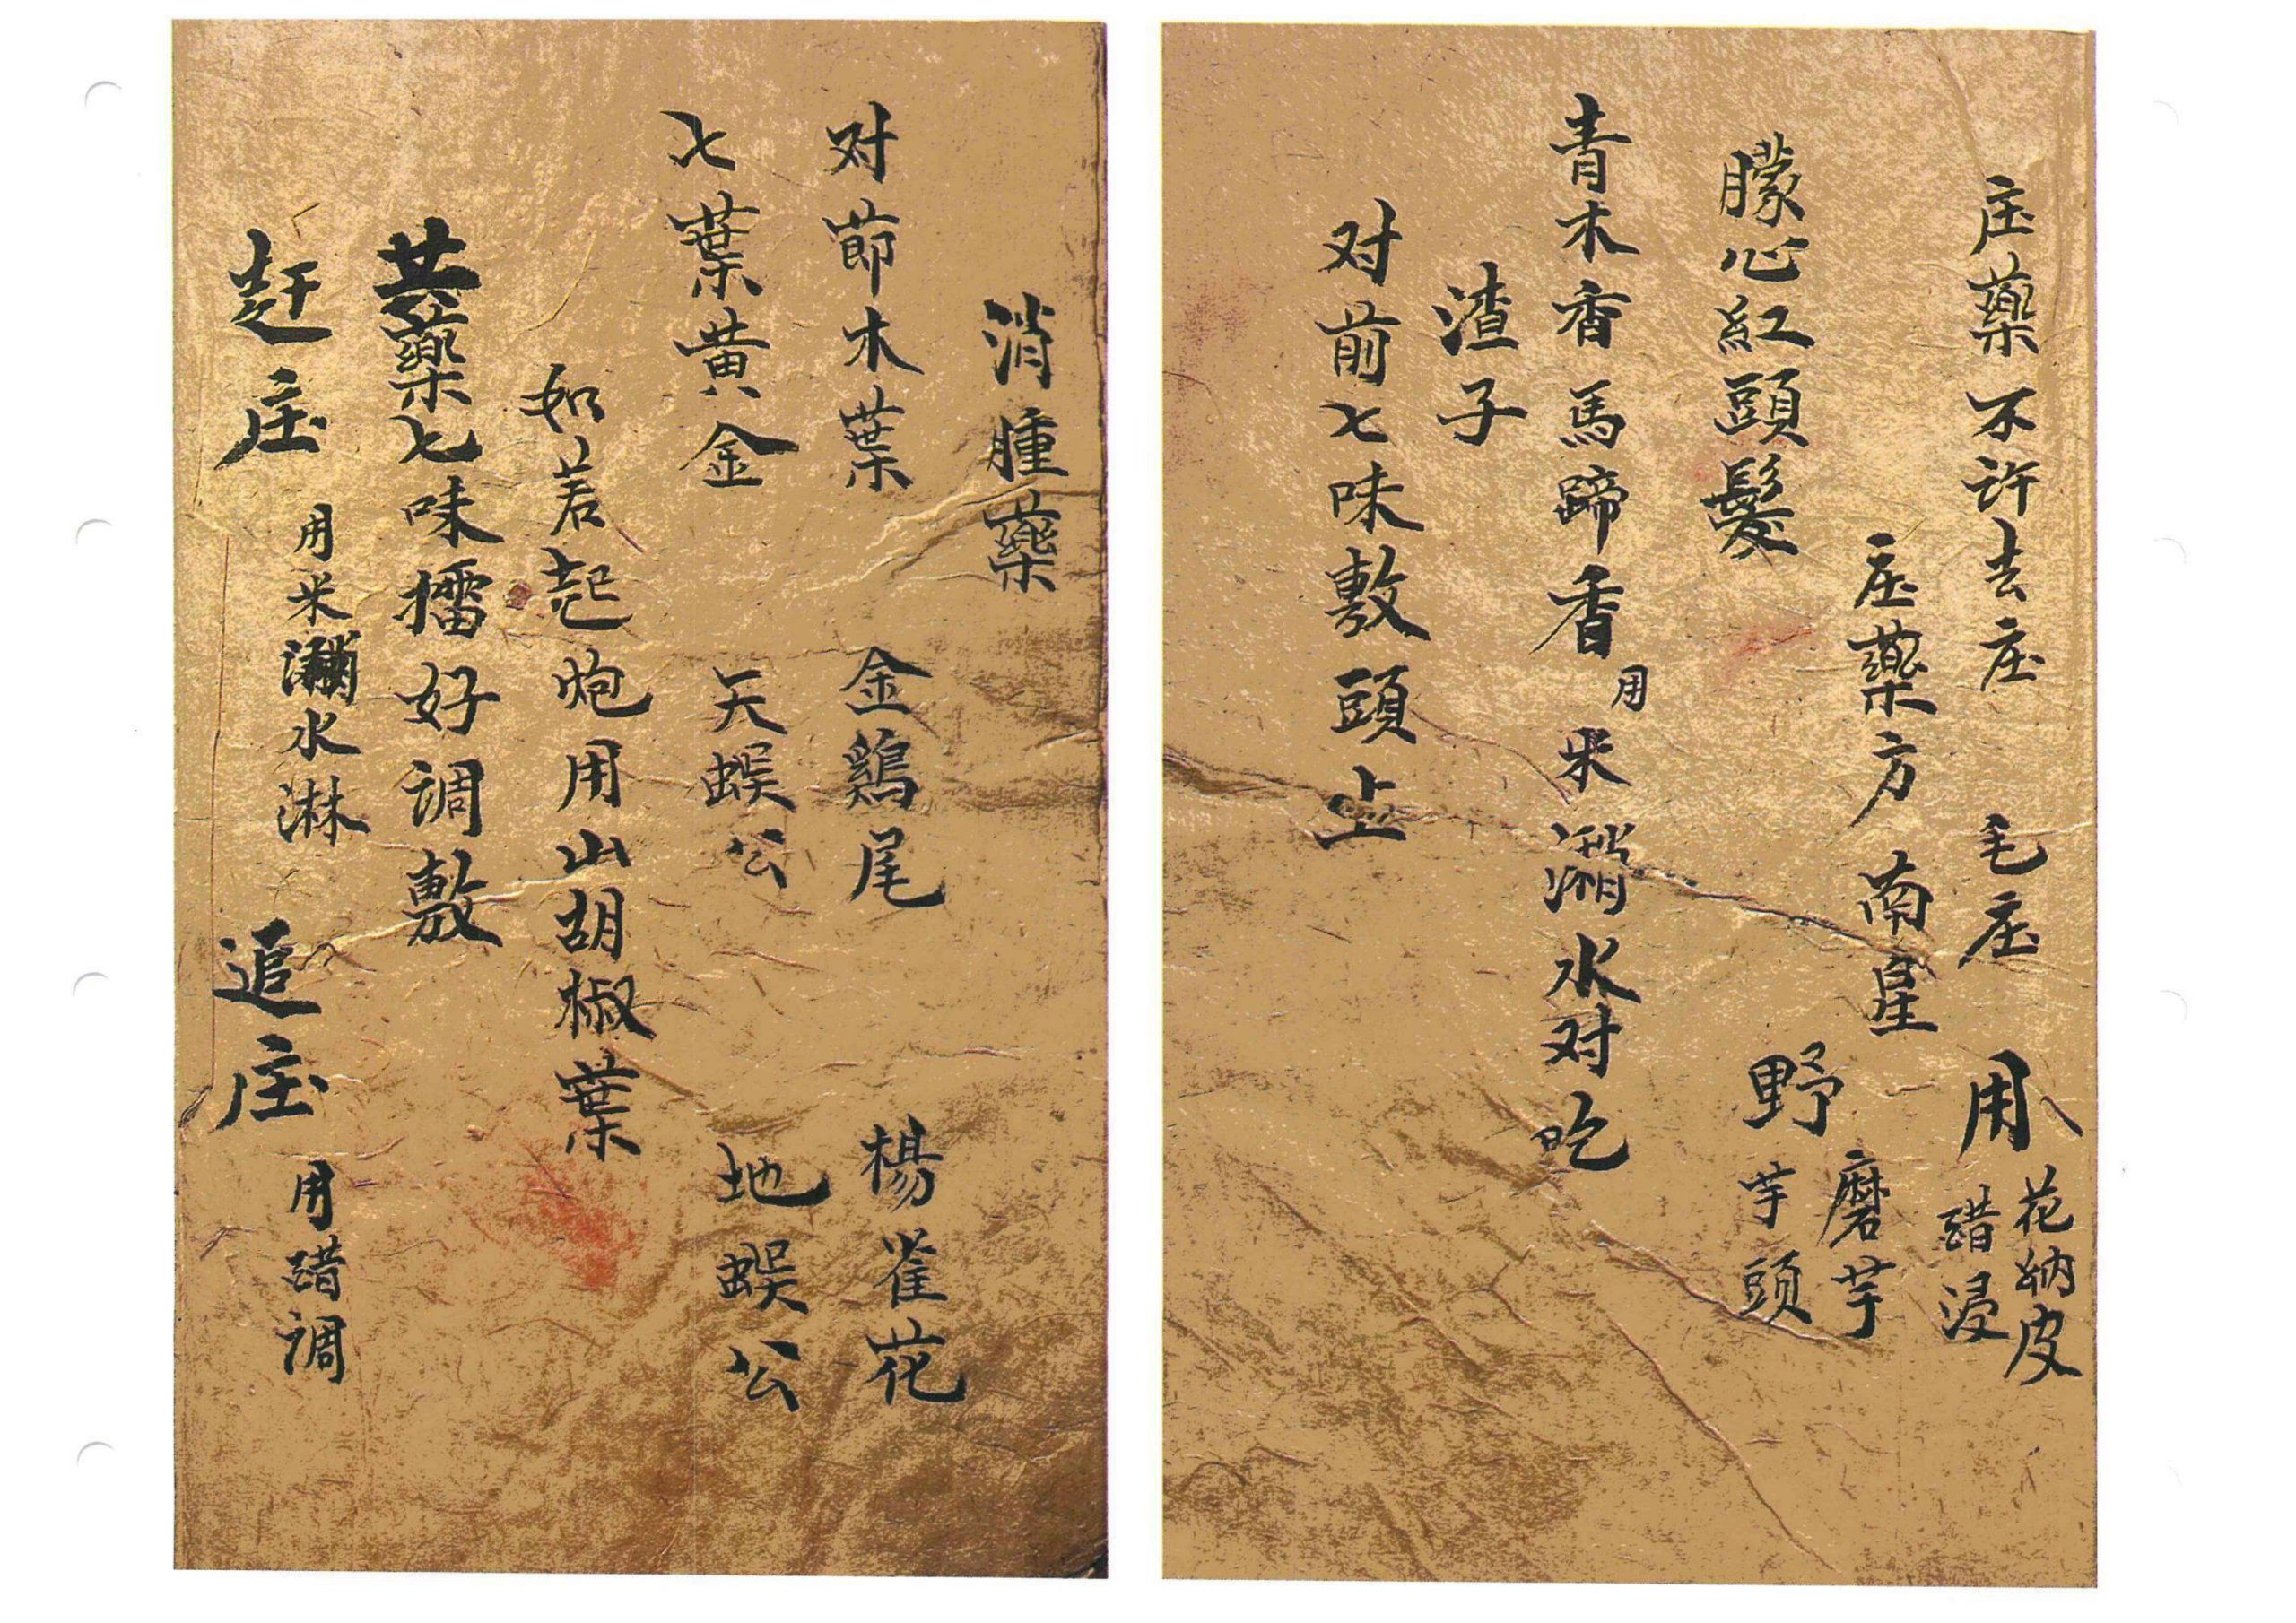 庄藥不許去庄 毛庄 用花納皮
醋浸
庄藥方 南星 磨芋
朦心紅頭髮 野芋頭
青木香馬蹄香用米潲水对吃
渣子
对前七味敷頭上
消腫藥
对節木葉 金鷄尾 楊雀花
七葉黄金 天蜈公 地蜈公
如若起炮用山胡椒葉
共藥七味擂好调敷
赶庄 用米潲水淋 追庄 用醋调